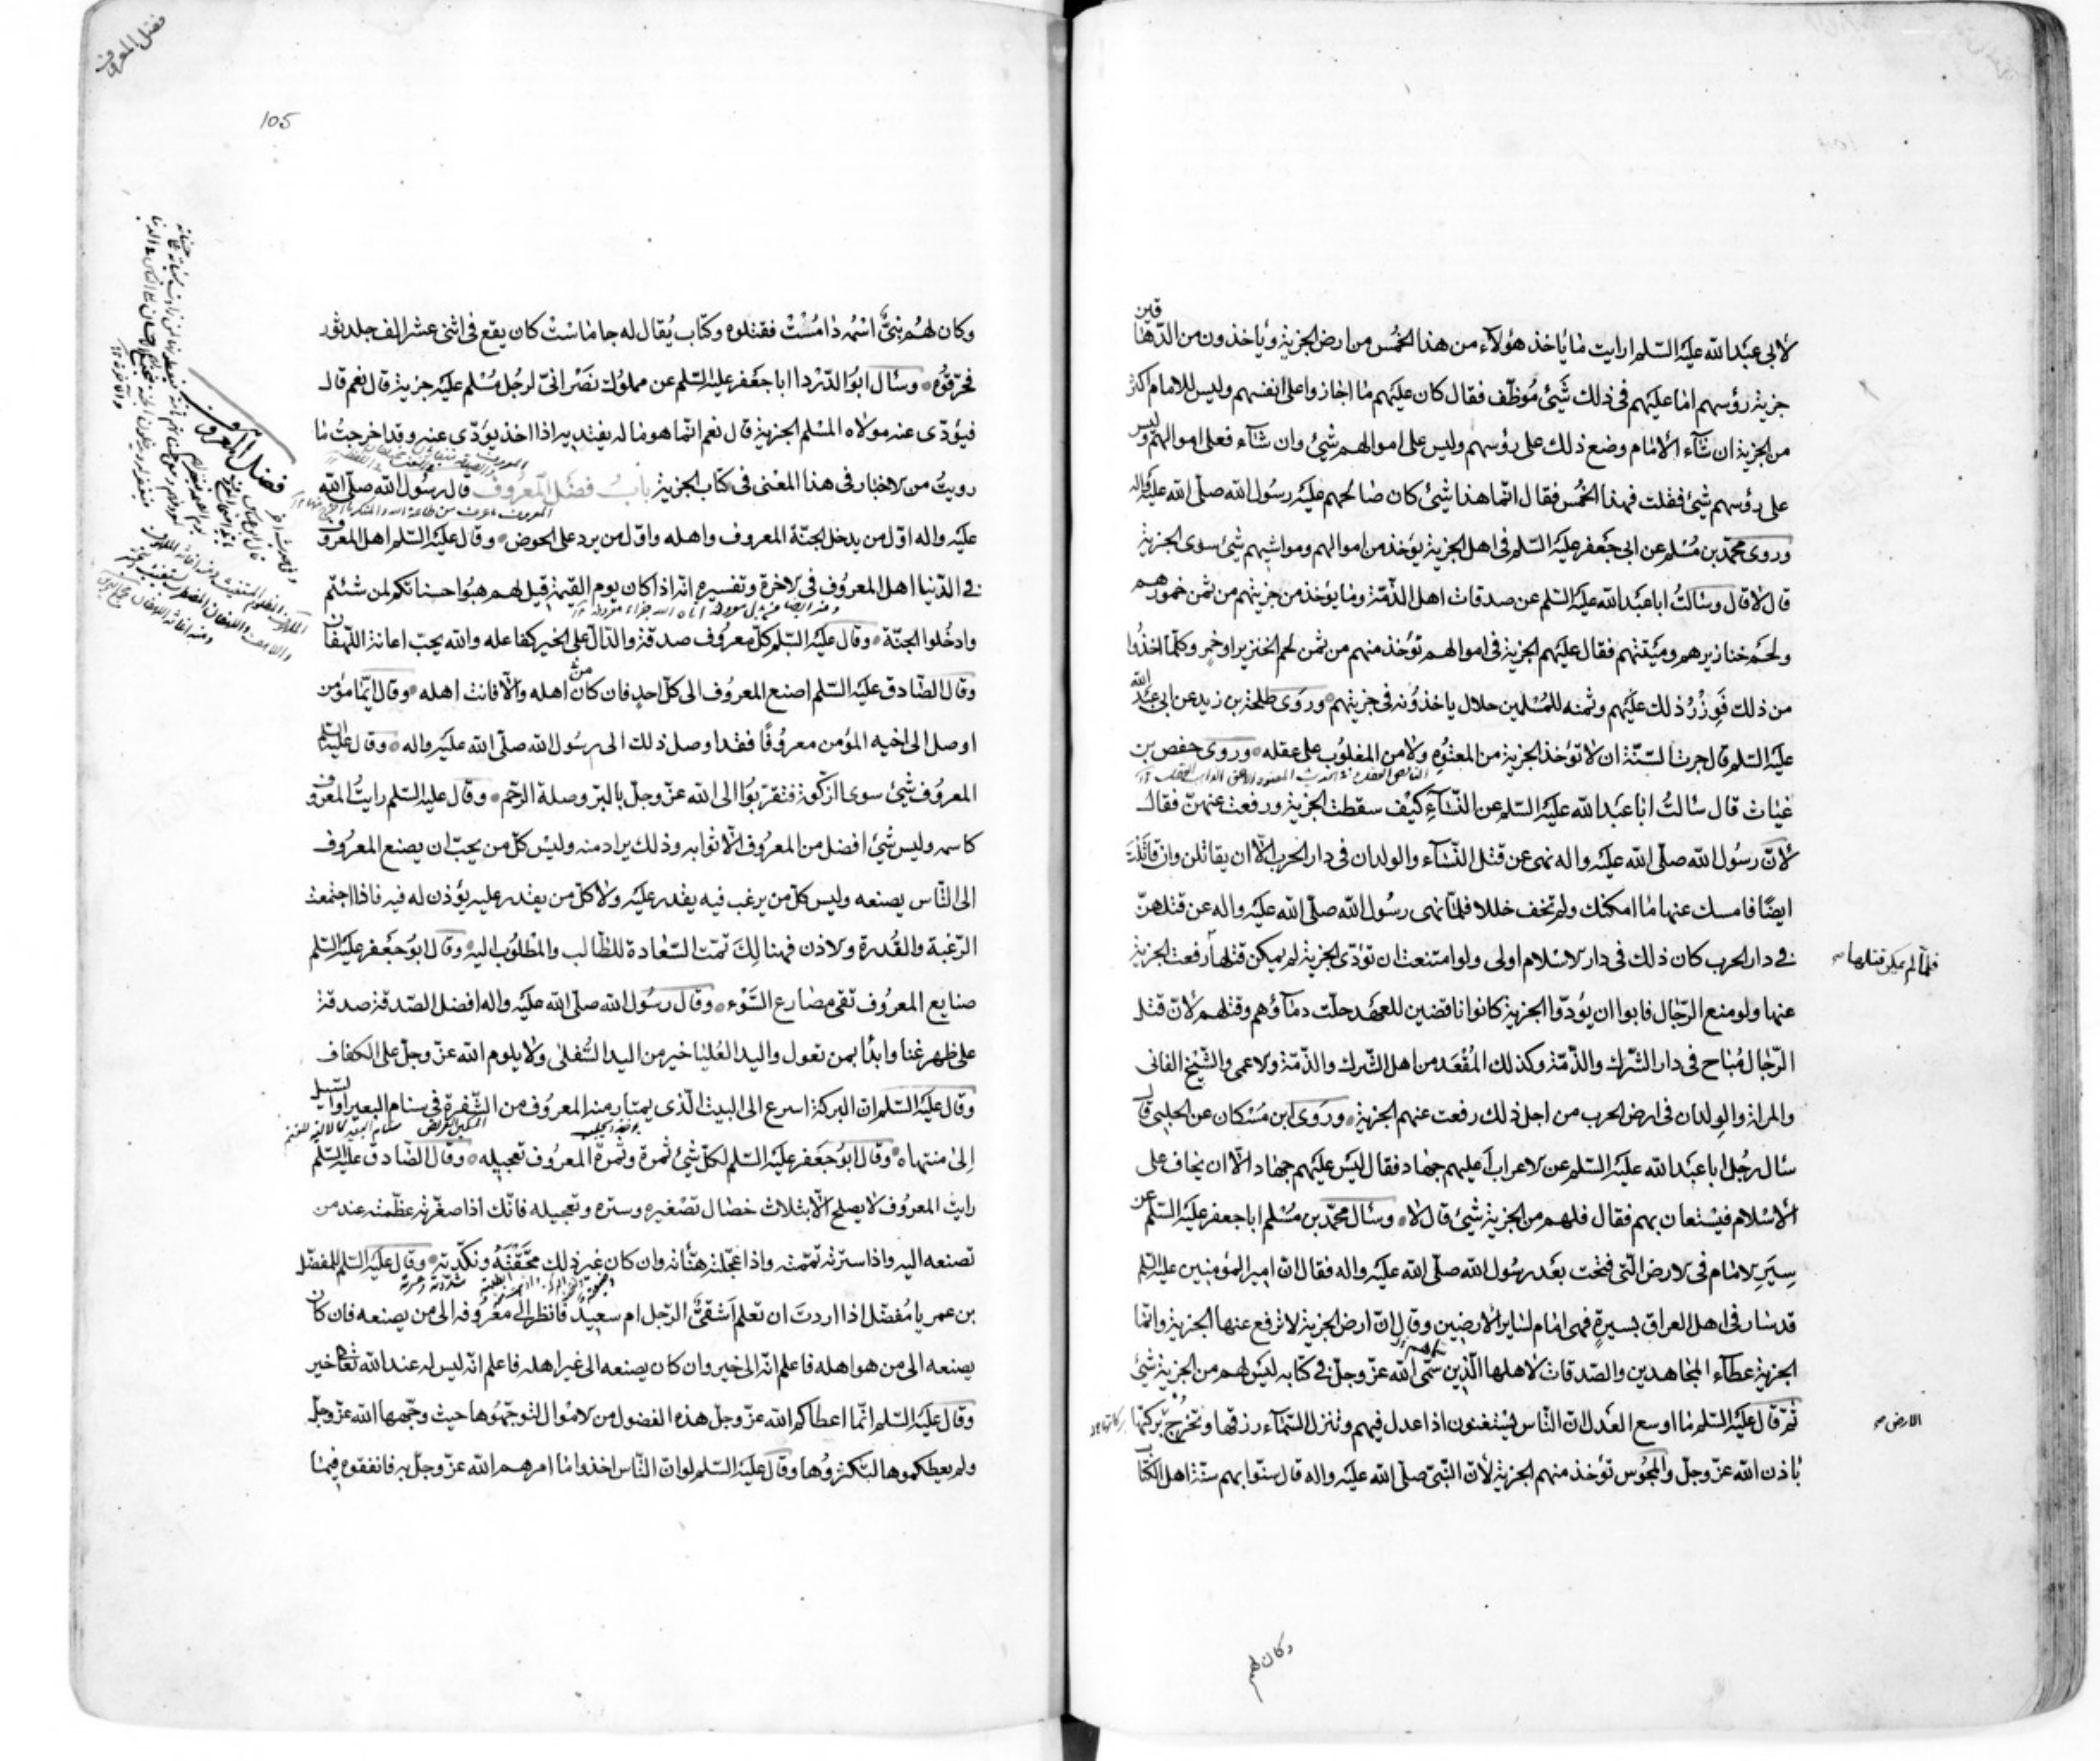 لابى عبد الله عليه السلم ارايت ما ياخذ هؤلاء من هذا الخمس من ارض الجزية وياخذون من الدهاقين
جزية رؤسهم اما عليهم فى ذلك شيئ موظف فقال كان عليهم ما اجازوا على انفسهم وليس للامام اكثر
من الجزية ان شآء الامام وضع ذلك على رؤسهم وليس على اموالهم شيئ وان شآء فعلى اموالهم وليس
على رؤسهم شيئ فقلت فهذا الخمس فقال انما هذا شيئ كان صالحهم عليه رسول الله صلى الله عليه واله
وروى محمد بن مسلم عن ابى جعفر عليه السلم فى اهل الجزية يؤخذ من اموالهم ومواشيهم شيئ سوى الجزية
قال لا قال وسالت ابا عبد الله عليه السلم عن صدقات اهل الذمة وما يؤخذ من جزيتهم من ثمن خمورهم
ولحم خنازيرهم وميتتهم فقال عليهم الجزية فى اموالهم تؤخذ منهم من ثمن لحم الخنزير او خمر وكلما اخذوا
من ذلك فوزر ذلك عليهم وثمنه للمسلمين حلال ياخذونه فى جزيتهم وروى طلحة بن زيد عن ابى عبد الله
عليه السلم قال جرت السنة ان لا تؤخذ الجزية من المعتوه ولا من المغلوب على عقله وروى حفص بن
غياث قال سالت ابا عبد الله عليه السلم عن النسآء كيف سقطت الجزية ورفعت عنهن فقال
لان رسول الله صلى الله عليه واله نهى عن قتل النسآء والولدان فى دار الحرب الا ان يقاتلن وان قاتلت
ايضا فامسك عنها ما امكنك ولم تخف خللا فلما نهى رسول الله صلى الله عليه واله عن قتلهن
فى دار الحرب كان ذلك فى دار الاسلام اولى ولو امتنعت ان تؤدى الجزية لم يمكن قتلها رفعت الجزية
فلما لم يمكن قتلها صح
عنها ولو منع الرجال فابوا ان يؤدوا الجزية كانوا ناقضين للعهد حلت دمآؤهم وقتلهم لان قتل
الرجال مباح فى دار الشرك والذمة وكذلك المقعد من اهل الشرك والذمة والاعمى والشيخ الفانى
والمراة والولدان فى ارض الحرب من اجل ذلك رفعت عنهم الجزية وروى ابن مسكان عن الحلبى قال
سال رجل ابا عبد الله عليه السلم عن الاعراب اعليهم جهاد فقال ليس عليهم جهاد الا ان يخاف على
الاسلام فيستعان بهم فقال فلهم من الجزية شيئ قال لا وسال محمد بن مسلم ابا جعفر عليه السلم عن
سير الامام فى الارض التى فتحت بعد رسول الله صلى الله عليه واله فقال ان امير المؤمنين عليه السلم
قد سار فى اهل العراق بسيرة فهى امام لساير الارضين وقال ان ارض الجزية لا ترفع عنها الجزية وانما
الجزية عطآء المجاهدين والصدقات لاهلها الذين سمى الله عز وجل فى كتابه ليس لهم من الجزية شيئ
ثم قال عليه السلم ما اوسع العدل ان الناس يستغنون اذا عدل فيهم وتنزل السمآء رزقها وتخرج بركتها
الارض صح
باذن الله عز وجل والمجوس تؤخذ منهم الجزية لان النبى صلى الله عليه واله قال سنوا بهم سنة اهل الكتاب
وكان لهم
فضل المعروف
105
وكان لهم نبى اسمه دامست فقتلوه وكتاب يقال له جاماست كان يقع فى اثنى عشر الف جلد ثور
فحرقوه وسال ابو الدرداا ابا جعفر عليه السلم عن مملوك نصرانى لرجل مسلم عليه جزية قال نعم قال
فيؤدى عنه مولاه المسلم الجزية قال نعم انما هو ماله يفتديه اذا اخذ يؤدى عنه وقد اخرجت ما
رويت من الاخبار فى هذا المعنى فى كتاب الجزية باب فضل المعروف قال رسول الله صلى الله
عليه واله اول من يدخل الجنة المعروف واهله واول من يرد على الحوض وقال عليه السلم اهل المعروف
فى الدنيا اهل المعروف فى الاخرة وتفسيره انه اذا كان يوم القيمة قيل لهم هبوا حسناتكم لمن شئتم
وادخلوا الجنة وقال عليه السلم كل معروف صدقة والدال على الخير كفاعله والله يحب اعانة اللهفان
وقال الصادق عليه السلم اصنع المعروف الى كل احد فان كان من اهله والا فانت اهله وقال ايما مؤمن
اوصل الى اخيه المؤمن معروفا فقد اوصل ذلك الى رسول الله صلى الله عليه واله وقال عليه السلم
المعروف شيئ سوى الزكوة فتقربوا الى الله عز وجل بالبر وصلة الرحم وقال عليه السلم رايت المعروف
كاسمه وليس شيئ افضل من المعروف الا ثوابه وذلك يراد منه وليس كل من يحب ان يصنع المعروف
الى الناس يصنعه وليس كل من يرغب فيه يقدر عليه ولا كل من يقدر عليه يؤذن له فيه فاذا اجتمعت
الرغبة والقدرة والاذن فهنالك تمت السعادة للطالب والمطلوب اليه وقال ابو جعفر عليه السلم
صنايع المعروف تقى مصارع السوء وقال رسول الله صلى الله عليه واله افضل الصدقة صدقة
على ظهر غنا وابدا بمن تعول واليد العليا خير من اليد السفلى ولا يلوم الله عز وجل على الكفاف
وقال عليه السلم ان البركة اسرع الى البيت الذى يمتار منه المعروف من الشفرة فى سنام البعير او السيل
الى منتهاه وقال ابو جعفر عليه السلم لكل شيئ ثمرة وثمرة المعروف تعجيله وقال الصادق عليه السلم
رايت المعروف لا يصلح الا بثلاث خصال تصغيره وستره وتعجيله فانك اذا صغرته عظمته عند من
تصنعه اليه واذا سترته تممته واذا عجلته هناته وان كان غير ذلك محقته ونكدته وقال عليه السلم للمفضل
بن عمر يا مفضل اذا اردت ان تعلم اشقى الرجل ام سعيد فانظر الى معروفه الى من يصنعه فان كان
يصنعه الى من هو اهله فاعلم انه الى خير وان كان يصنعه الى غير اهله فاعلم انه ليس له عند الله تعالى خير
وقال عليه السلم انما اعطاكم الله عز وجل هذه الفضول من الاموال لتوجهوها حيث وجهها الله عز وجل
ولم يعطكموها لتكنزوها وقال عليه السلم لو ان الناس اخذوا ما امرهم الله عز وجل به فانفقوه فيما
فضل المعروف